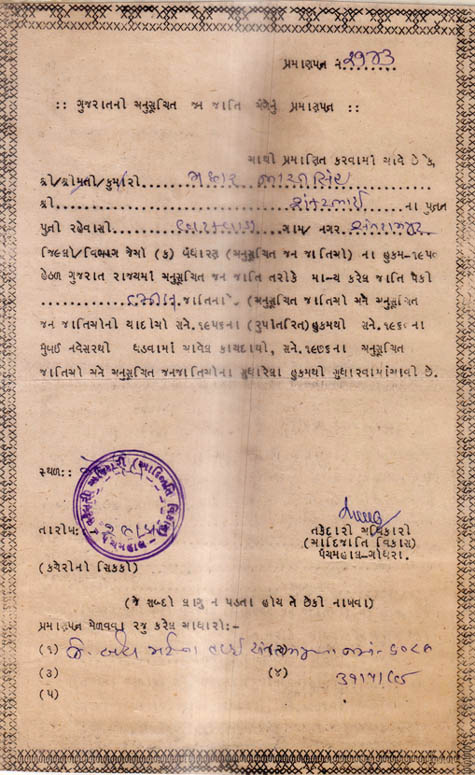 પ્રમાણપત્ર નં ૨૧૪૩
:: ગુજરાતની અનુસૂચિત જન જાતિ અંગેનું પ્રમાણપત્ર ::
આથી પ્રમાણિત કરવામાં આવે છે કે,
શ્રી/શ્રીમતી/કુમારી
શ્રી શંકરભાઈ ના પુત્ર
પુત્રી રહેવાસી ગામ/ નગર
જિલ્લો/વિભાગ જેઓ (ક) બંધારણ (અનુસૂચિત જન જાતિઓ) ના હુકમ-૧૯૫૦
હેઠળ ગુજરાત રાજ્યમાં અનુસૂચિત જન જાતિ તરીકે માન્ય કરેલ જાતિ પૈકી
જાતિના છે. (અનુસૂચિત જાતિઓ અને અનુસૂચિત
જન જાતિઓની યાદીઓ સને.૧૯૫૬ના (રૂપાંતરિત) હુકમથી સને.૧૯૬૦ના
મુંબઈ નવેસરથી ઘડવામાં આવેલ કાયદાથી, સને.૧૯૭૬ના અનુસૂચિત
જાતિઓ અને અનુસૂચિત જનજાતિઓના સુધારેલા હુકમથી સુધારવામાં આવી છે.
સ્થળ::
તારીખ:
તકેદારી અધિકારી
(આદિજાતિ વિકાસ)
પંચમહાલ-ગોધરા.
(કચેરીનો સિક્કો)
(જે શબ્દો લાગુ ન પડતા હોય તે છેકી નાખવા)
પ્રમાણપત્ર મેળવવા રજુ કરેલ આધારો:-
(૧)
(૩) (૪)
(૫)